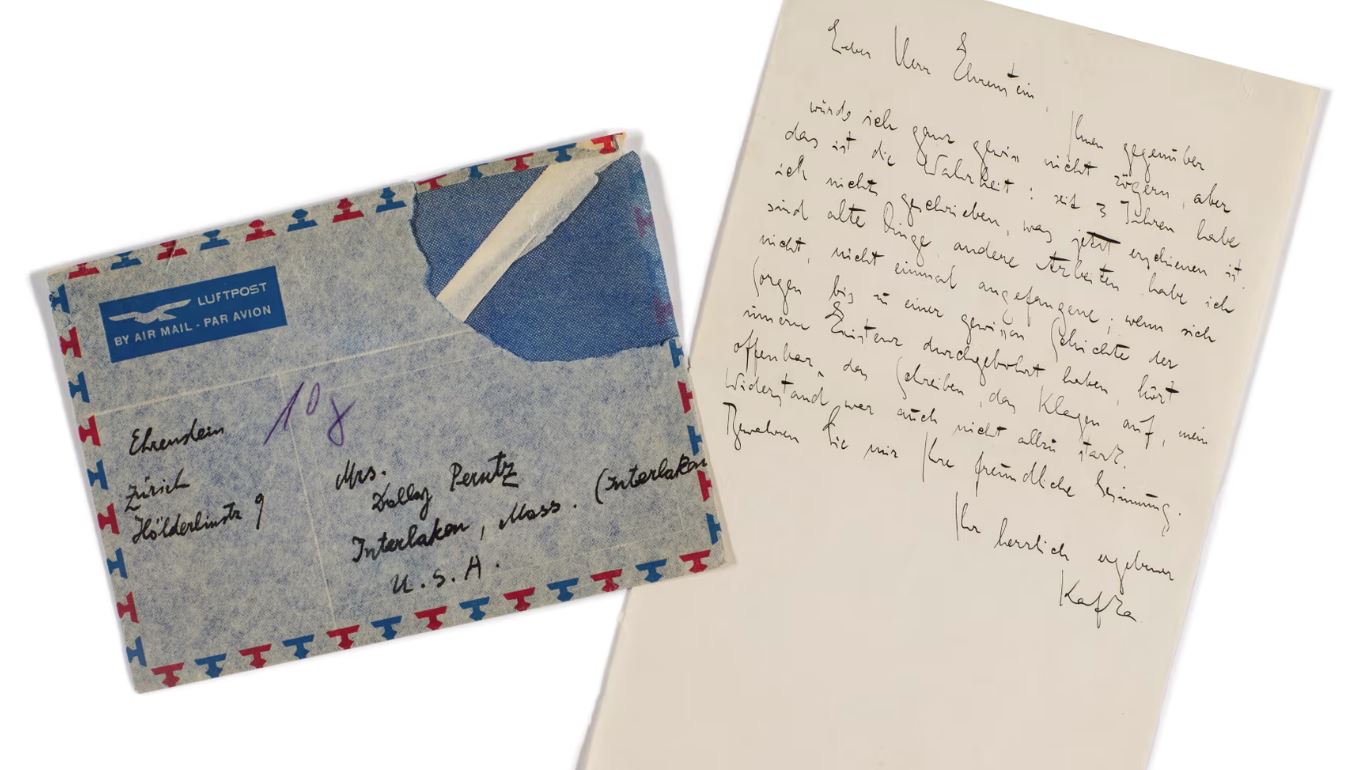 LUFTPOST
BY AIR MAIL - PAR AVION
10 g
Ehrenstein
Zürich
Hölderlinstr 9
Mrs.
Dolly Perutz
Interlaken, Mass. (Interlaken
U.S.A.
Lieber Herr Ehrenstein,
Ihnen gegenüber
würde ich ganz gewiss nicht zögern, aber
das ist die Wahrheit: seit 3 Jahren habe
ich nichts geschrieben, was jetzt erschienen ist,
sind alte Dinge, andere Arbeiten habe ich
nicht, nicht einmal angefangene; wenn sich
Sorgen bis zu einer gewissen Schichte der
innern Existenz durchgebohrt haben, hört
offenbar das Schreiben, das Klagen auf, mein
Widerstand war auch nicht allzu stark.
Bewahren Sie mir Ihre freundliche Gesinnung.
Ihr herzlich ergebener
Kafka